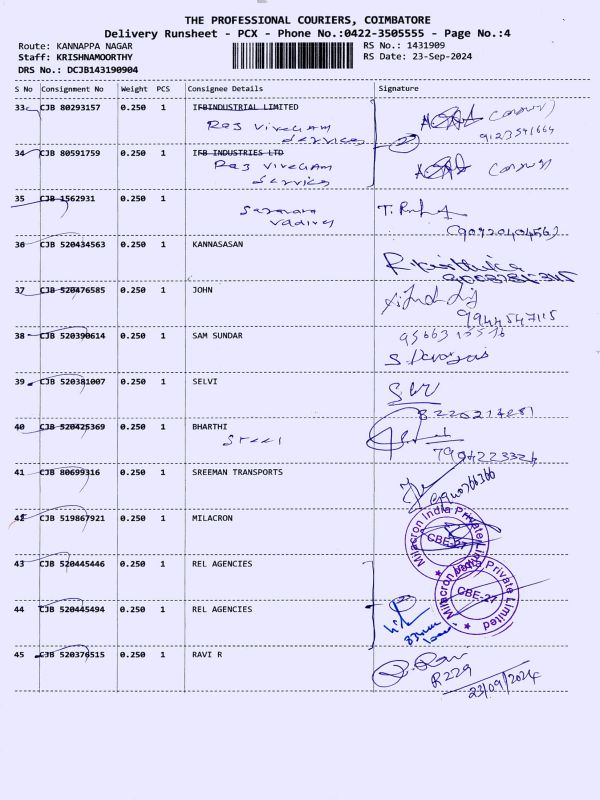 THE PROFESSIONAL COURIERS, COIMBATORE
Delivery Runsheet - PCX - Phone No.:0422-3505555 - Page No.:4
Route: KANNAPPA NAGAR
RS No.: 1431909
Staff: KRISHNAMOORTHY
RS Date: 23-Sep-2024
DRS No.: DCJB143190904
S No Consignment No Weight PCS Consignee Details Signature
33 CJB 80293157 0.250 1 IFBINDUSTRIAL LIMITED
Services
9123541664
34 CJB 80591759 0.250 1 IFB INDUSTRIES LTD
Service
35 CJB 1562931 0.250 1
36 CJB 520434563 0.250 1 KANNASASAN
37 CJB 520476585 0.250 1 JOHN
9944547115
38 CJB 520390614 0.250 1 SAM SUNDAR
39 CJB 520381007 0.250 1 SELVI
40 CJB 520425369 0.250 1 BHARTHI
Steel
41 CJB 80699316 0.250 1 SREEMAN TRANSPORTS
42 CJB 519867921 0.250 1 MILACRON
Milacron India Private Limited
CBE-27
43 CJB 520445446 0.250 1 REL AGENCIES
Milacron India Private Limited
CBE-27
44 CJB 520445494 0.250 1 REL AGENCIES
45 CJB 520376515 0.250 1 RAVI R
R229
23/09/2024